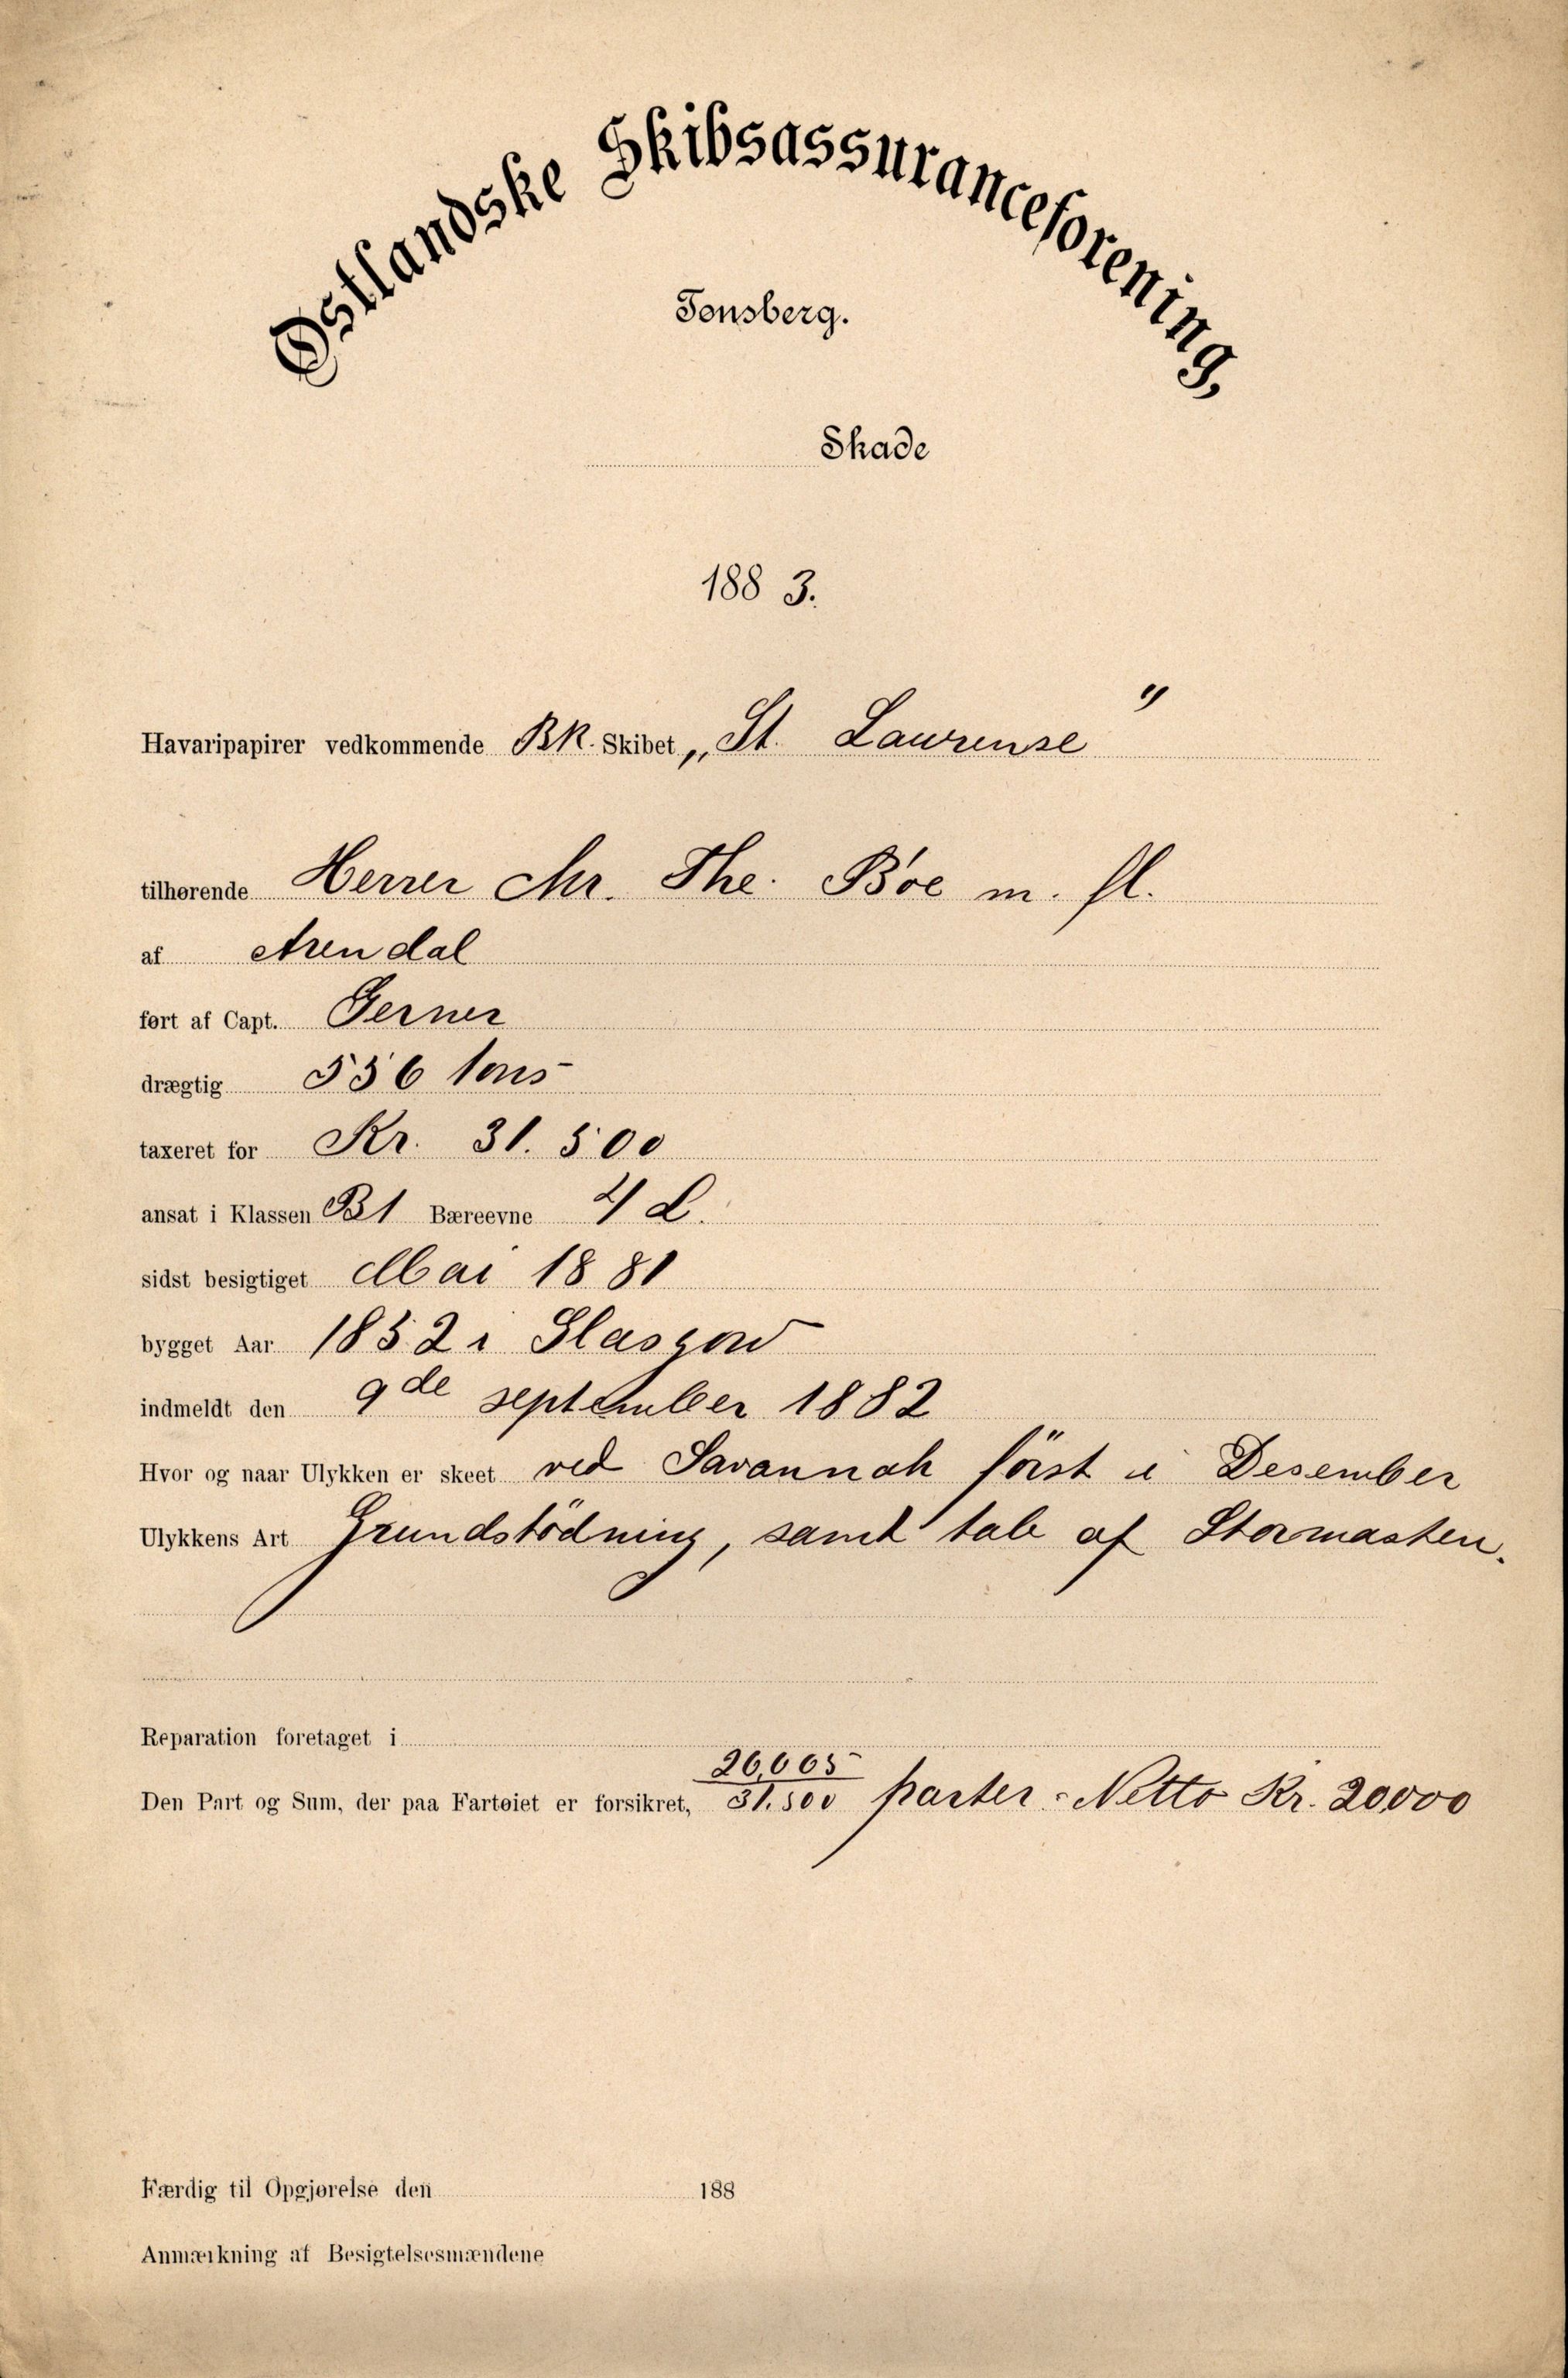 Østlandske Skibsassuranceforening,
Tønsberg.
Skade
1883.
Havaripapirer vedkommende BK. Skibet „St. Lawrense"
tilhørende Herrer Chr. The. Böe m. fl.
af Arendal
ført af Capt. Gerner
drægtig 556 tons
taxeret for Kr. 31.500
ansat i Klassen B1 Bæreevne 4/ L.
sidst besigtiget Mai 1881
bygget Aar 1852 i Glasgow
indmeldt den 9de september 1882
Hvor og naar Ulykken er skeet ved Savannah först i Desember
Ulykkens Art Grundstödning, samt tab af Stormasten.
Reparation foretaget i
Den Part og Sum, der paa Fartøiet er forsikret, 26,005/31.500 parter = Netto Kr. 20000
Færdig til Opgjørelse den 188
Anmærkning af Besigtelsesmændene